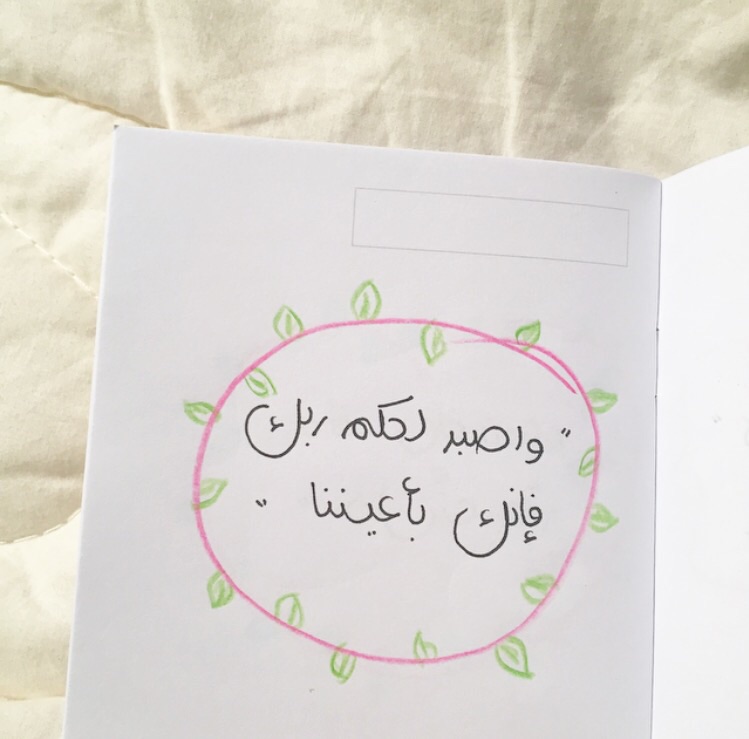 "واصبر لحكم ربك
فإنك بأعيننا"